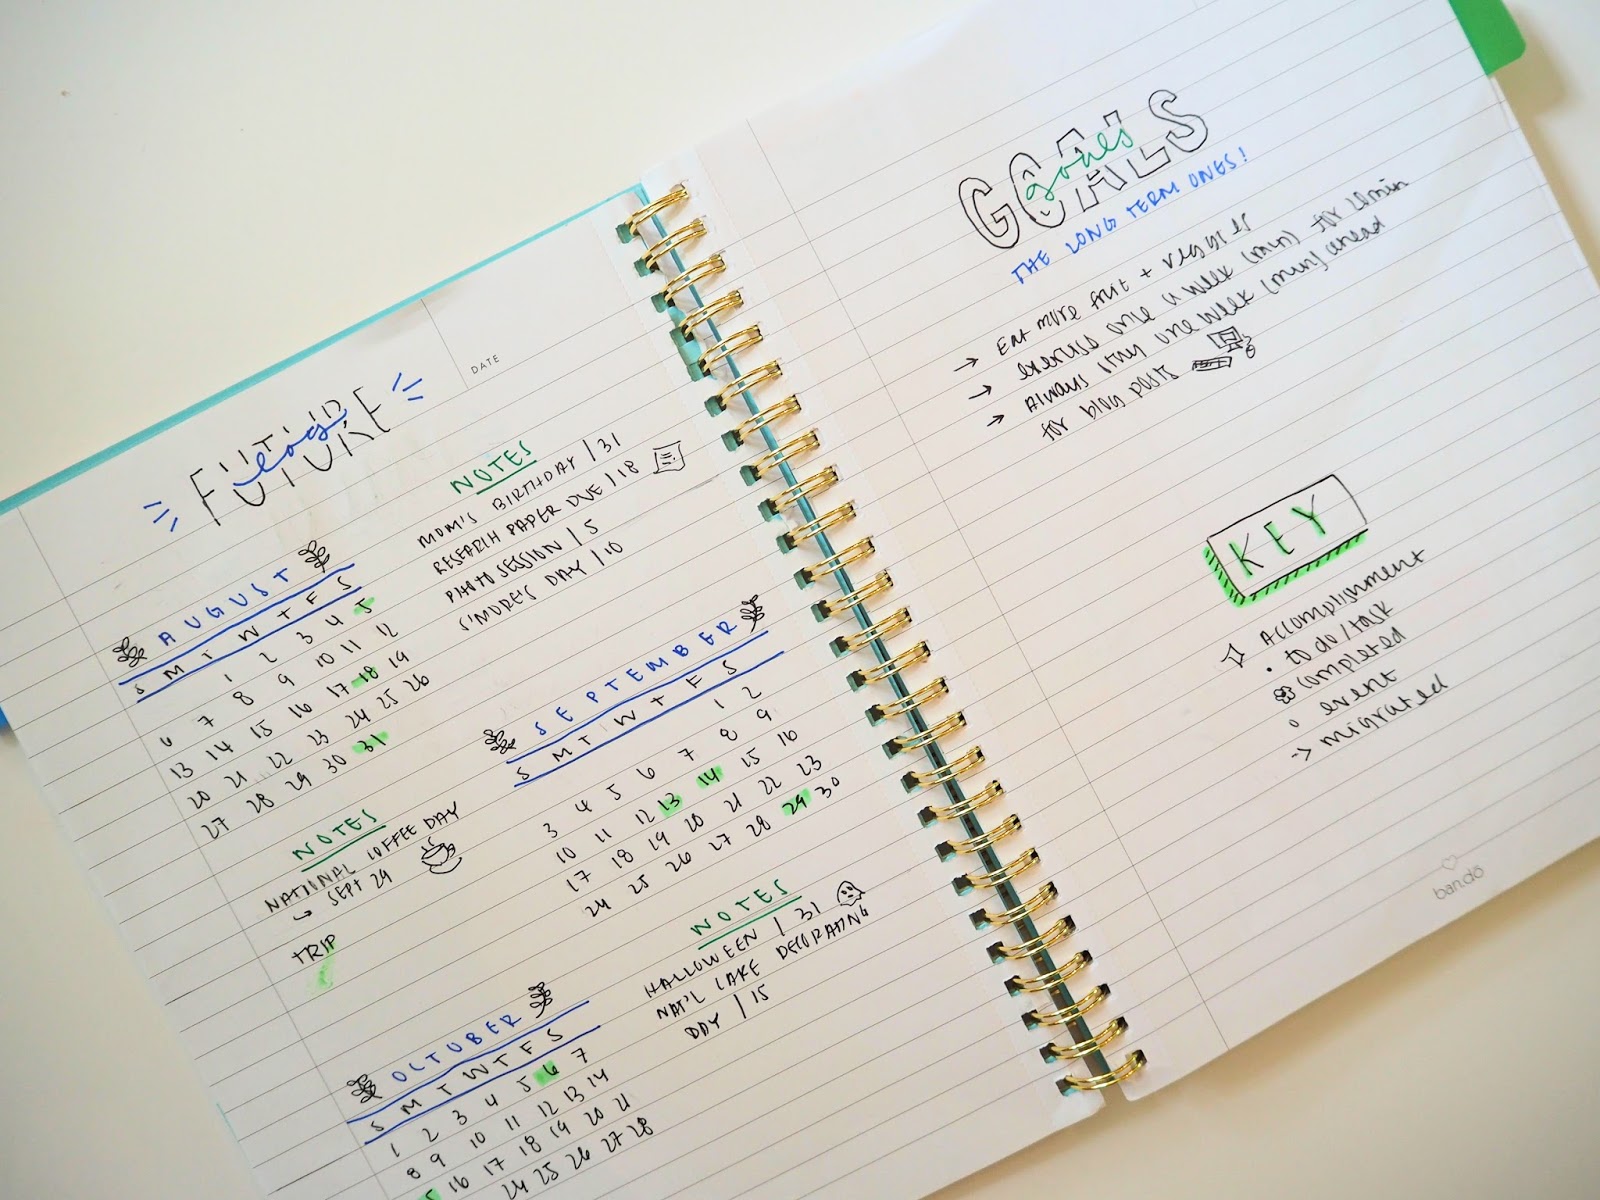 DATE
FUTURE
log
NOTES
MOM'S BIRTHDAY | 31
RESEARCH PAPER DUE | 18
PHOTO SESSION | 5
S'MORE'S DAY | 10
AUGUST
S M T W T F S
1 2 3 4 5
6 7 8 9 10 11 12
13 14 15 16 17 18 19
20 21 22 23 24 25 26
27 28 29 30 31
SEPTEMBER
S M T W T F S
1 2
3 4 5 6 7 8 9
10 11 12 13 14 15 16
17 18 19 20 21 22 23
24 25 26 27 28 29 30
NOTES
NATIONAL COFFEE DAY
→ SEPT 29
TRIP
OCTOBER
S M T W T F S
1 2 3 4 5 6 7
8 9 10 11 12 13 14
16 17 18 19 20 21
24 25 26 27 28
NOTES
HALLOWEEN | 31
NAT'L CAKE DECORATING
DAY | 15
GOALS
goals
THE LONG TERM ONES!
→ Eat more fruit + veggies
→ exercise once a week (min) for 20min
→ Always stay one week (min) ahead
for blog posts
KEY
Accomplishment
• to do/task
completed
o event
→ migrated
ban.dō